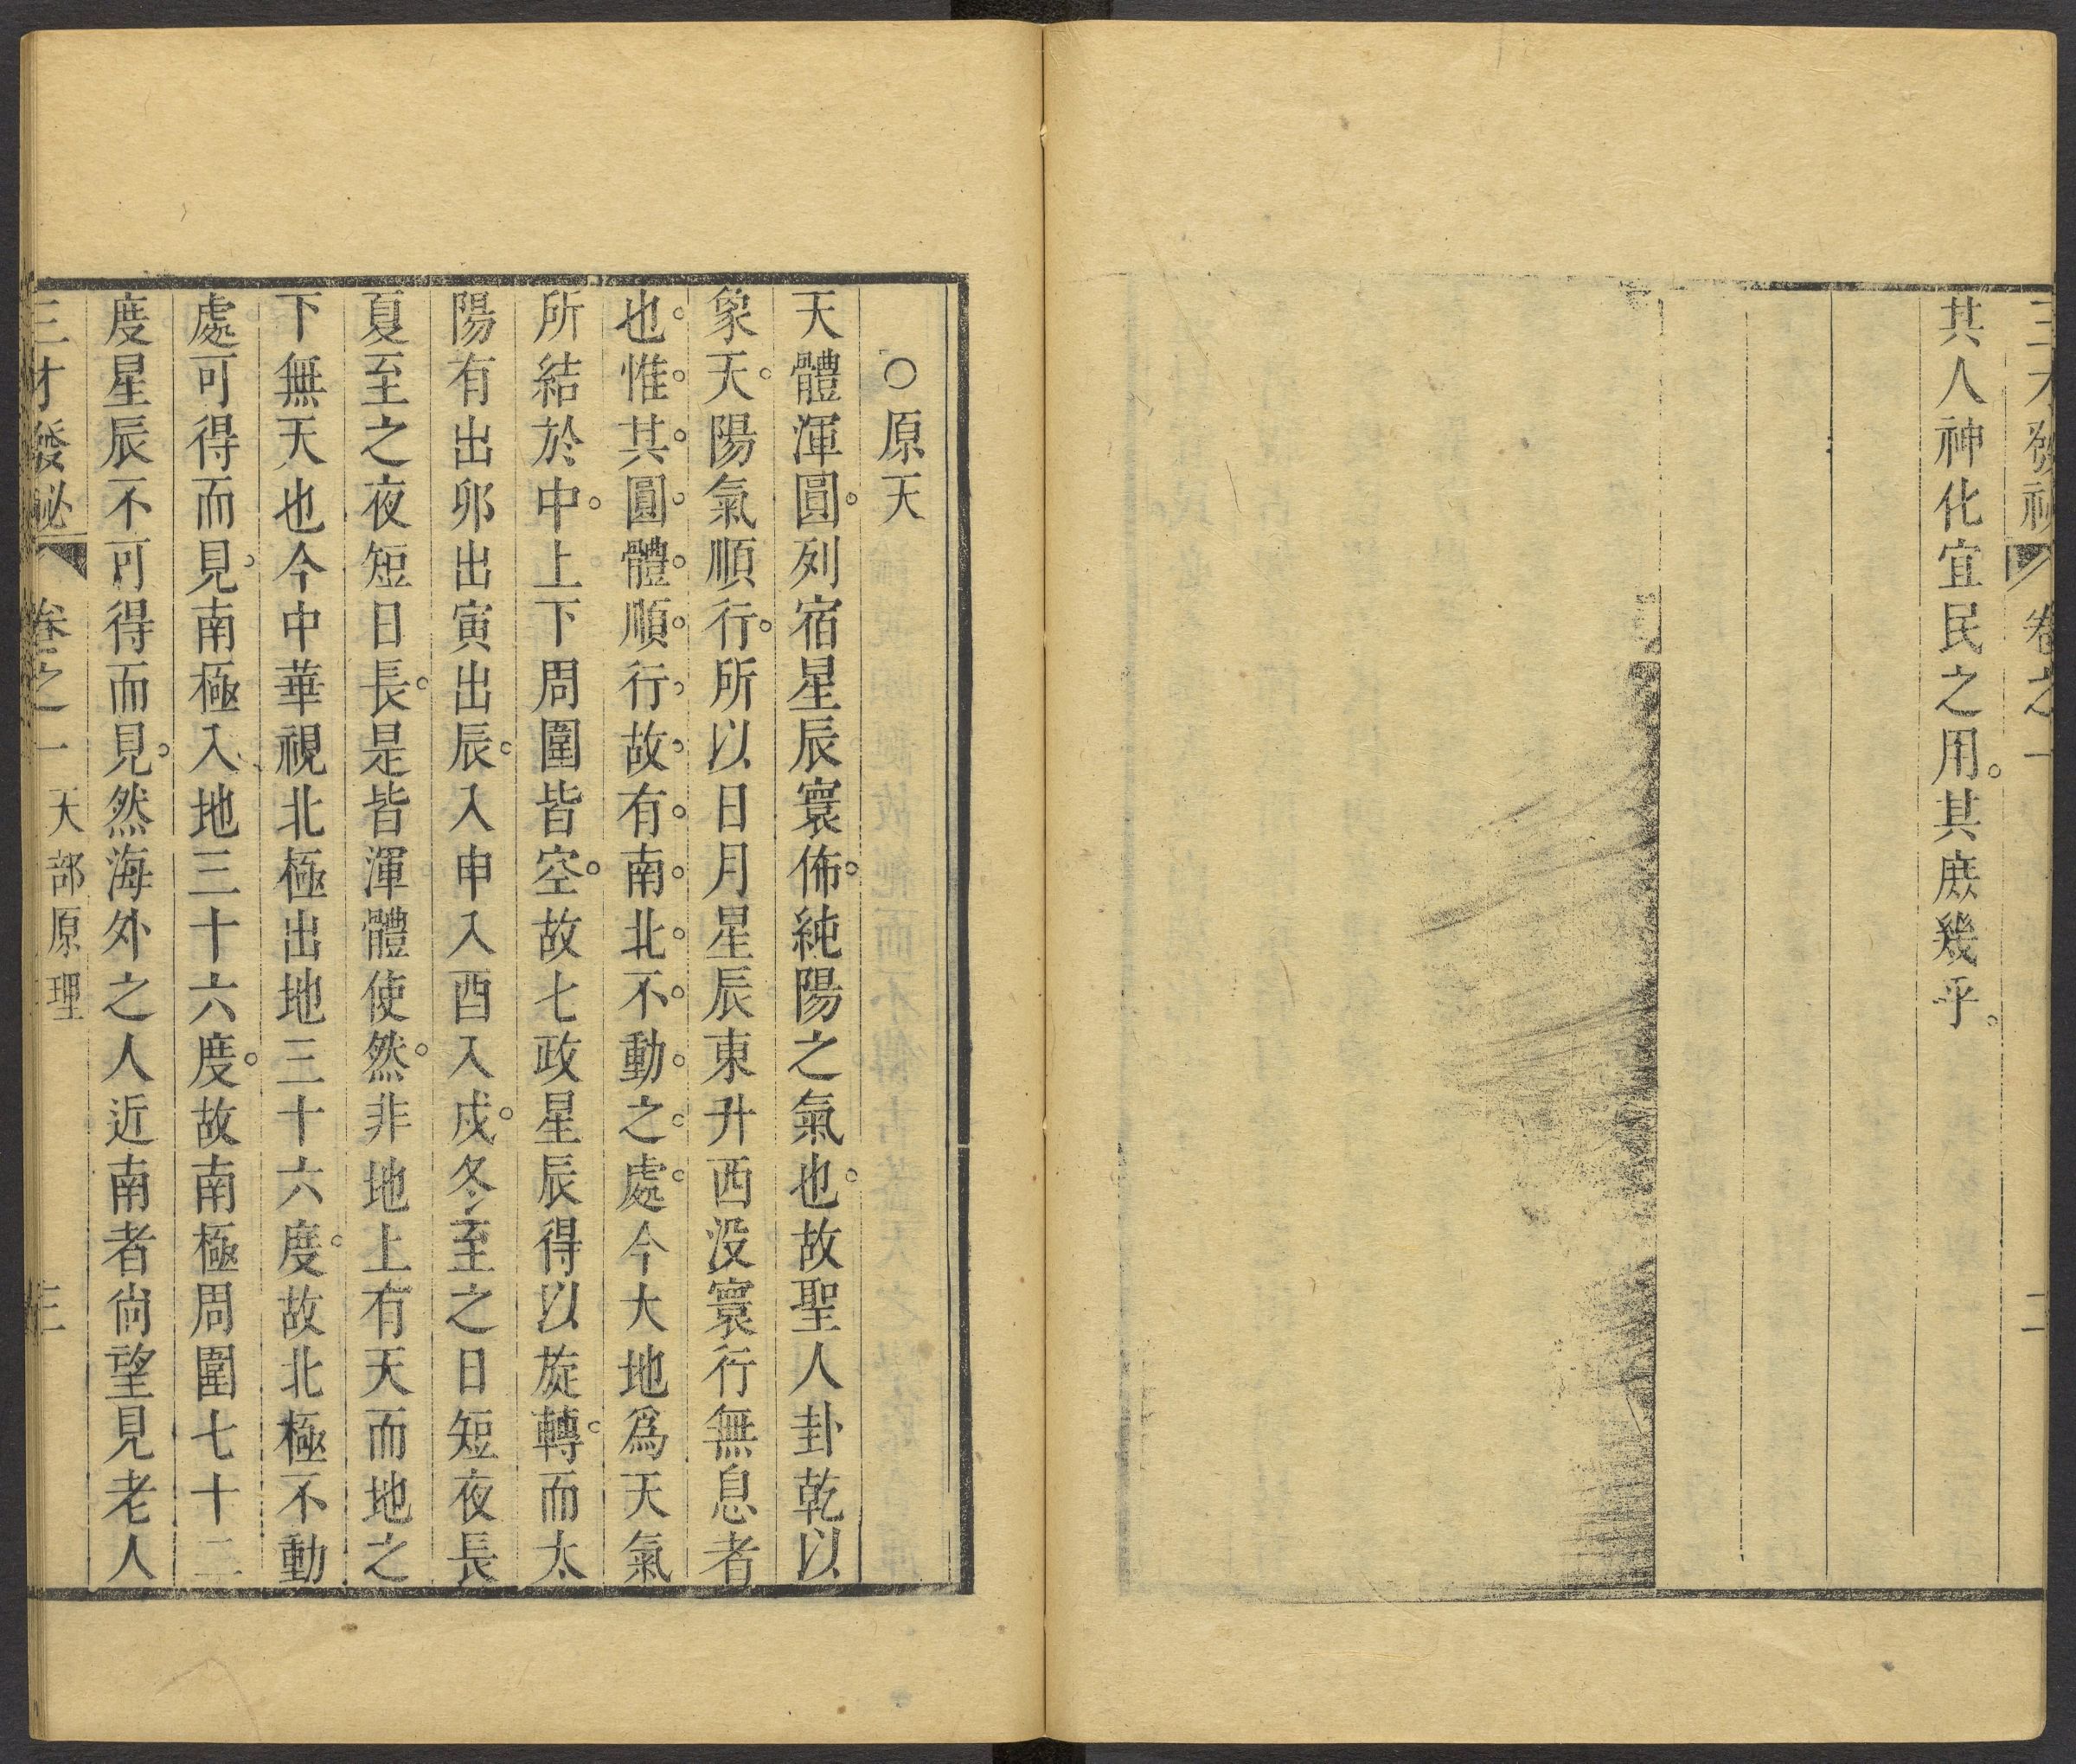 三才發秘 卷之一 二
其人神化宜民之用。其庶幾乎。
○原天
天體渾圓。列宿星辰寰佈。純陽之氣也。故聖人卦乾以
象天。陽氣順行。所以日月星辰東升西没寰行無息者
也。惟其圓體順行。故有南北不動之處。今大地爲天氣
所結於中。上下周圍皆空。故七政星辰得以旋轉。而太
陽有出卯出寅出辰。入申入酉入戍。冬至之日短夜長
夏至之夜短日長。是皆渾體使然。非地上有天而地之
下無天也今中華視北極出地三十六度。故北極不動
處可得而見。南極入地三十六度。故南極周圍七十二
度星辰不可得而見。然海外之人近南者尙望見老人
三才發秘 卷之一 天部原理 三